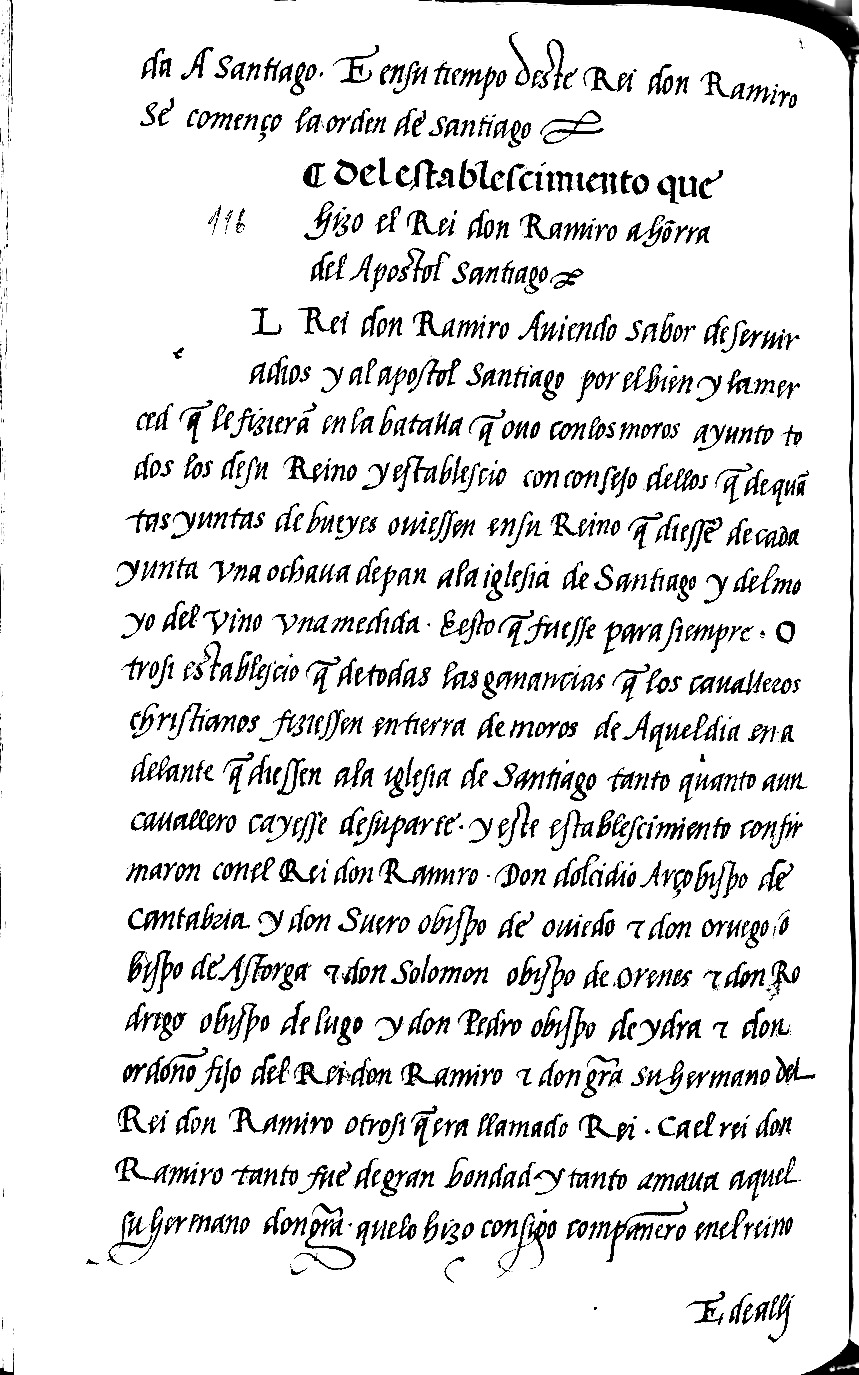 da A Santiago. E ensu tiempo deste Rei don Ramiro
Se començo la orden de santiago
¶ Del establescimiento que
116 hizo el Rei don Ramiro a hõrra
del Apostol Santiago
L Rei don Ramiro Auiendo sabor de seruir
adios y al apostol Santiago por el bien y la mer
ced q̃ le fizierã en la batalla q̃ ouo con los moros ayunto to
dos los desu Reino y establescio con consejo dellos q̃ de quã
tas yuntas de bueyes ouiessen ensu Reino q̃ diessẽ de cada
yunta vna ochaua de pan ala iglesia de Santiago y del mo
yo del vino vna medida. E esto q̃ fuesse para siempre. O
trosi establescio q̃ de todas las ganancias q̃ los caualleros
christianos fiziessen en tierra de moros de Aquel dia en a
delante q̃ diessen ala iglesia de Santiago tanto quanto aun
cauallero cayesse desu parte. y este establescimiento confir
maron con el Rei don Ramiro. Don dolcidio Arçobispo de
Cantabria y don Suero obispo de ouiedo ⁊ don oruego o
bispo de Astorga ⁊ don Solomon obispo de orenes ⁊ don Ro
drigo obispo de lugo y don Pedro obispo de ydra ⁊ don
ordoño fijo del Rei don Ramiro ⁊ don gr̃a su hermano del
Rei don Ramiro otrosi q̃ era llamado Rei. Ca el rei don
Ramiro tanto fue de gran bondad y tanto amaua aquel
su hermano don gr̃a. que lo hizo consigo compañero en el reino
E de allj